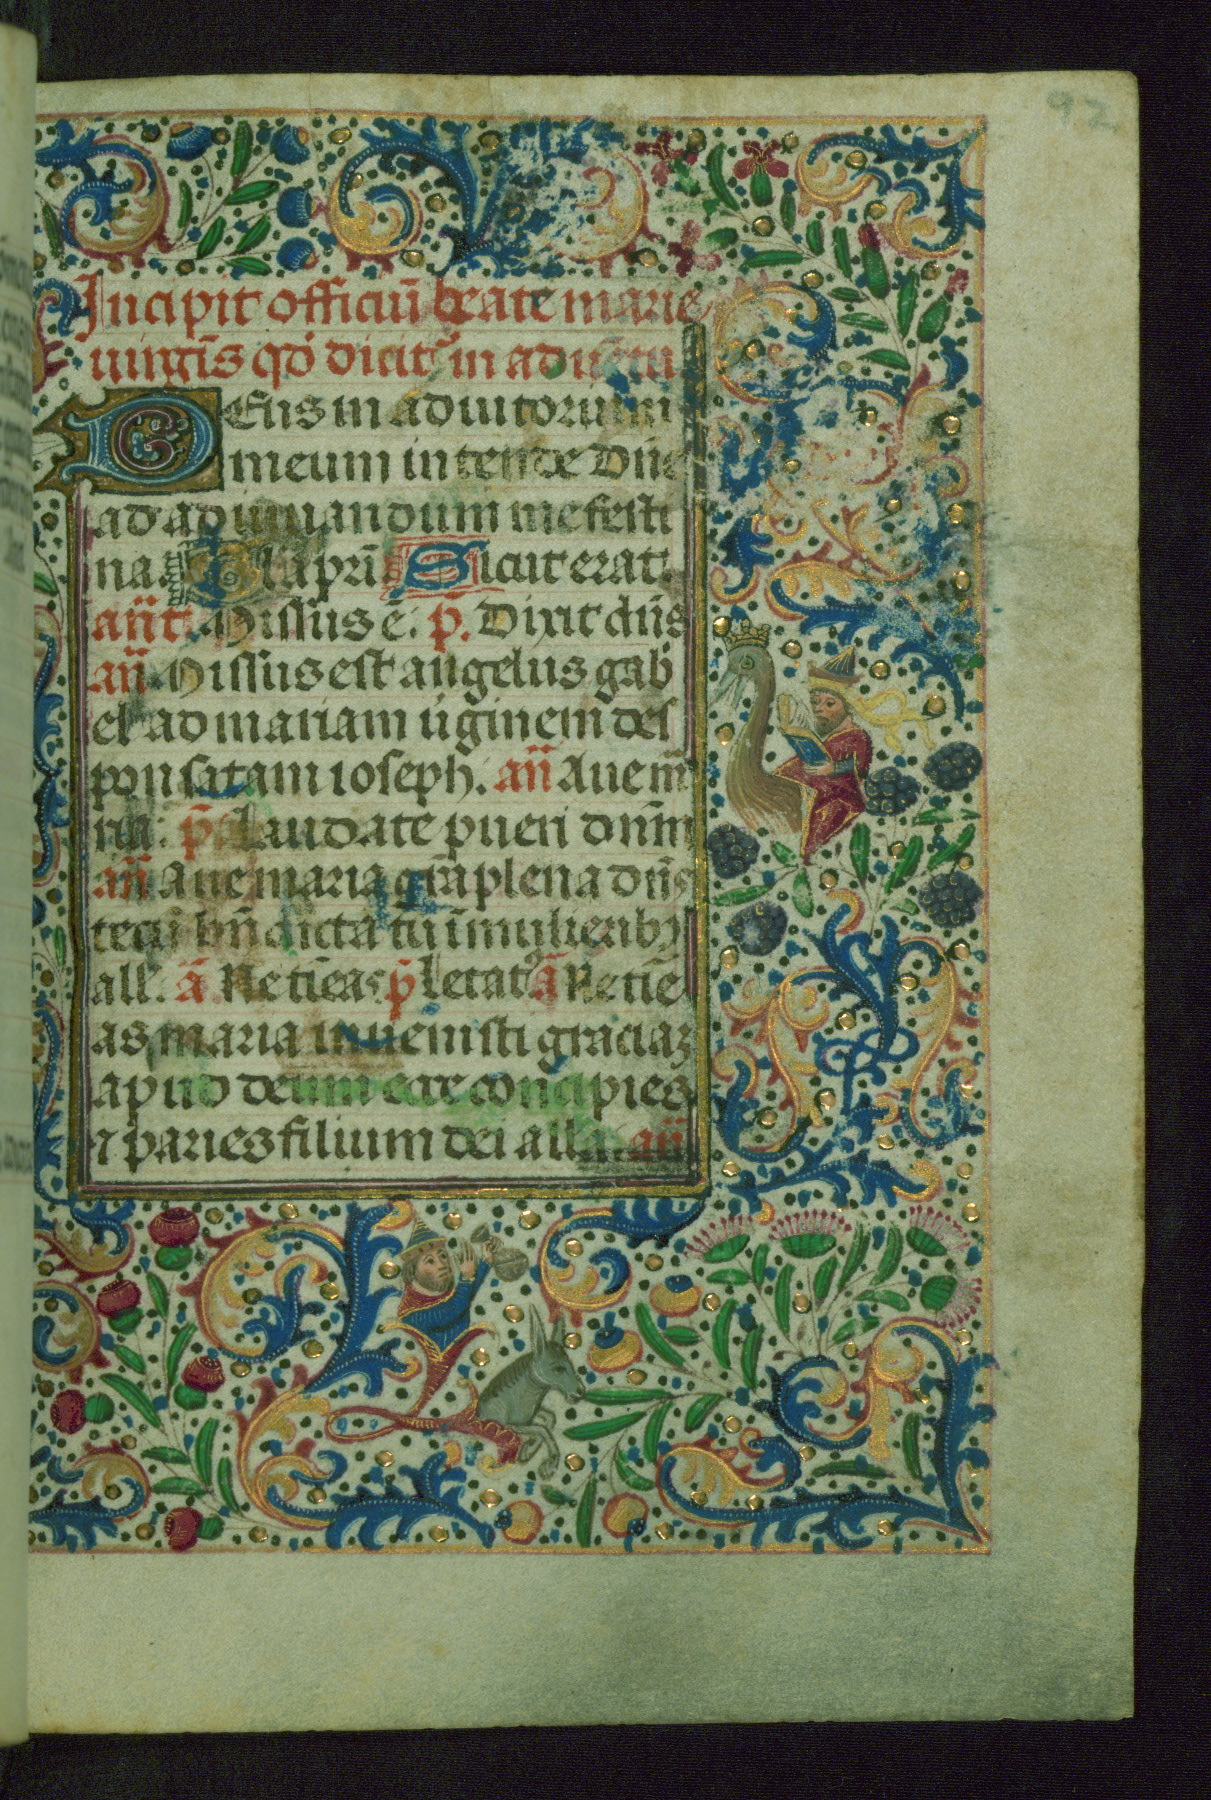 92
Incipit officiū beate marie
uirgīs qđ dicit' in aduētu
DEus in adiutorium
meum intende Dn̄e
ad adiuuandum me festi
na. Gl'a pr̄i Sicut erat.
an̄t. Missus ē. p̄. Dixit dn̄s
an̄ Missus est angelus gab
el' ad mariam ūginem des
ponsatam ioseph. an̄ Aue m̄
ria. p̄. Laudate pueri dn̄m
an̄ Aue maria gr̄a plena dn̄s
tecū bn̄dicta tu ī mulieribꝫ
all'. ā Ne tīeas p̄ Letat' ā Ne tīe
as maria inuenisti graciaꝫ
apud deum ecce concipies
⁊ paries filium dei all'a. an̄